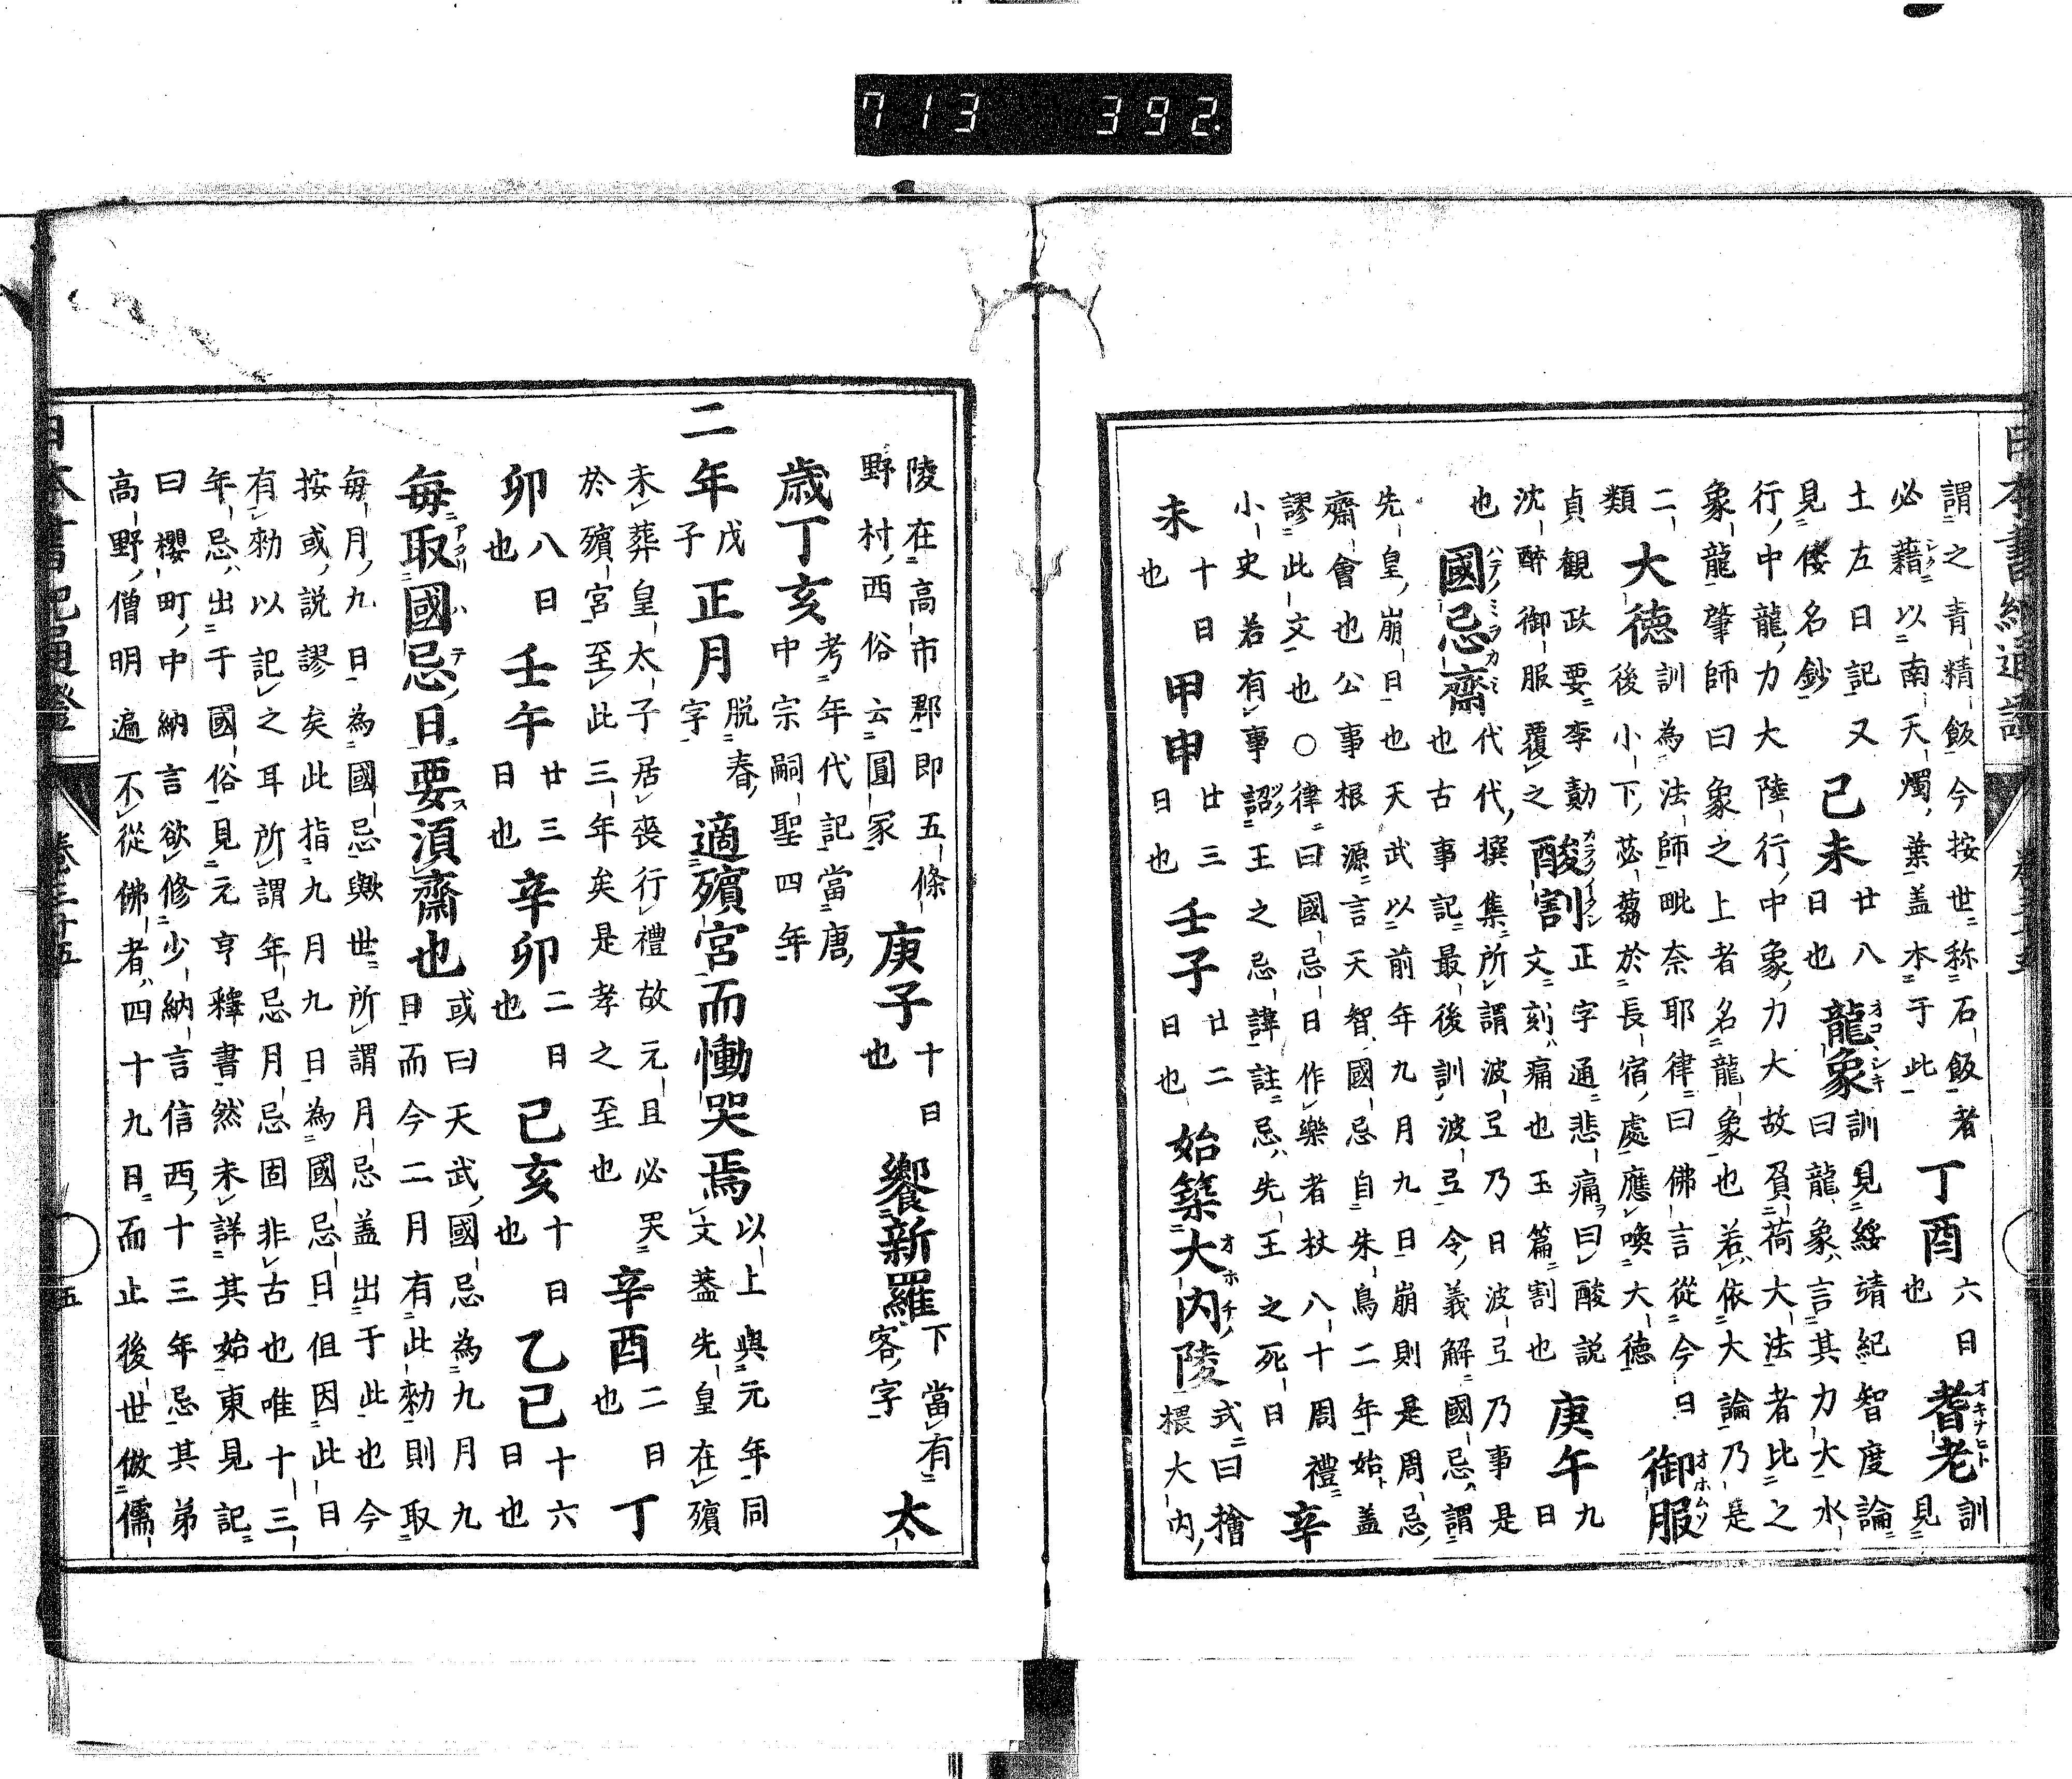 713 392
日本書紀通證 卷三十五
謂之青精飯今按世称石飯者 丁酉 六日也 耆老 訓見
必藉以南天燭葉盖本于此
土左日記又 己未 廿八日也 龍象 訓見綏靖紀智度論
見倭名鈔 曰龍象言其力大水
行中龍力大陸行中象力大故負荷大法者比之
象龍肇師曰象之上者名龍象也若依大論乃是
二類 大徳 訓為法師毗奈耶律曰佛言從今日後小下苾蒭於長宿處應喚大徳 御服
貞觀政要李勣 酸割 正字通悲痛曰酸説文刻痛也玉篇割也 庚午 九日
沈醉御服覆之
也 國忌齋 代代撰集所謂波弖乃日波弖乃事是也古事記最後訓波弖令義解國忌謂
先皇崩日也天武以前年九月九日崩則是周忌
齋會也公事根源言天智國忌自朱鳥二年始盖
謬此文也○律曰國忌日作樂者杖八十周禮 辛
小史若有事詔王之忌諱註忌先王之死日
未 十日也 甲申 廿三日也 壬子 廿二日也 始築大内陵 式曰檜榅大内
陵在高市郡即五條 庚子 十日也 饗新羅 下當有客字 太
野村西俗云圓冢
歳丁亥 考年代記當唐中宗嗣聖四年
二年 戊子 正月 脱春字 適殯宮而慟哭焉 以上與元年同文蓋先皇在殯
未葬皇太子居喪行禮故元且必哭 辛酉 二日也 丁
於殯宮至此三年矣是孝之至也
卯 八日也 壬午 廿三日也 辛卯 二日也 己亥 十日也 乙巳 十六日也
毎取國忌日要湏齋也 或曰天武國忌為九月九日而今二月有此勅則取
毎月九日為國忌歟世所謂月忌盖出于此也今
按或説謬矣此指九月九日為國忌日但因此日
有勅以記之耳所謂年忌月忌固非古也唯十三
年忌出于國俗見元亨釋書然未詳其始東見記
曰櫻町中納言欲修少納言信西十三年忌其弟
高野僧明遍不從佛者四十九日而止後世倣儒
日本書紀通證 卷三十五 五